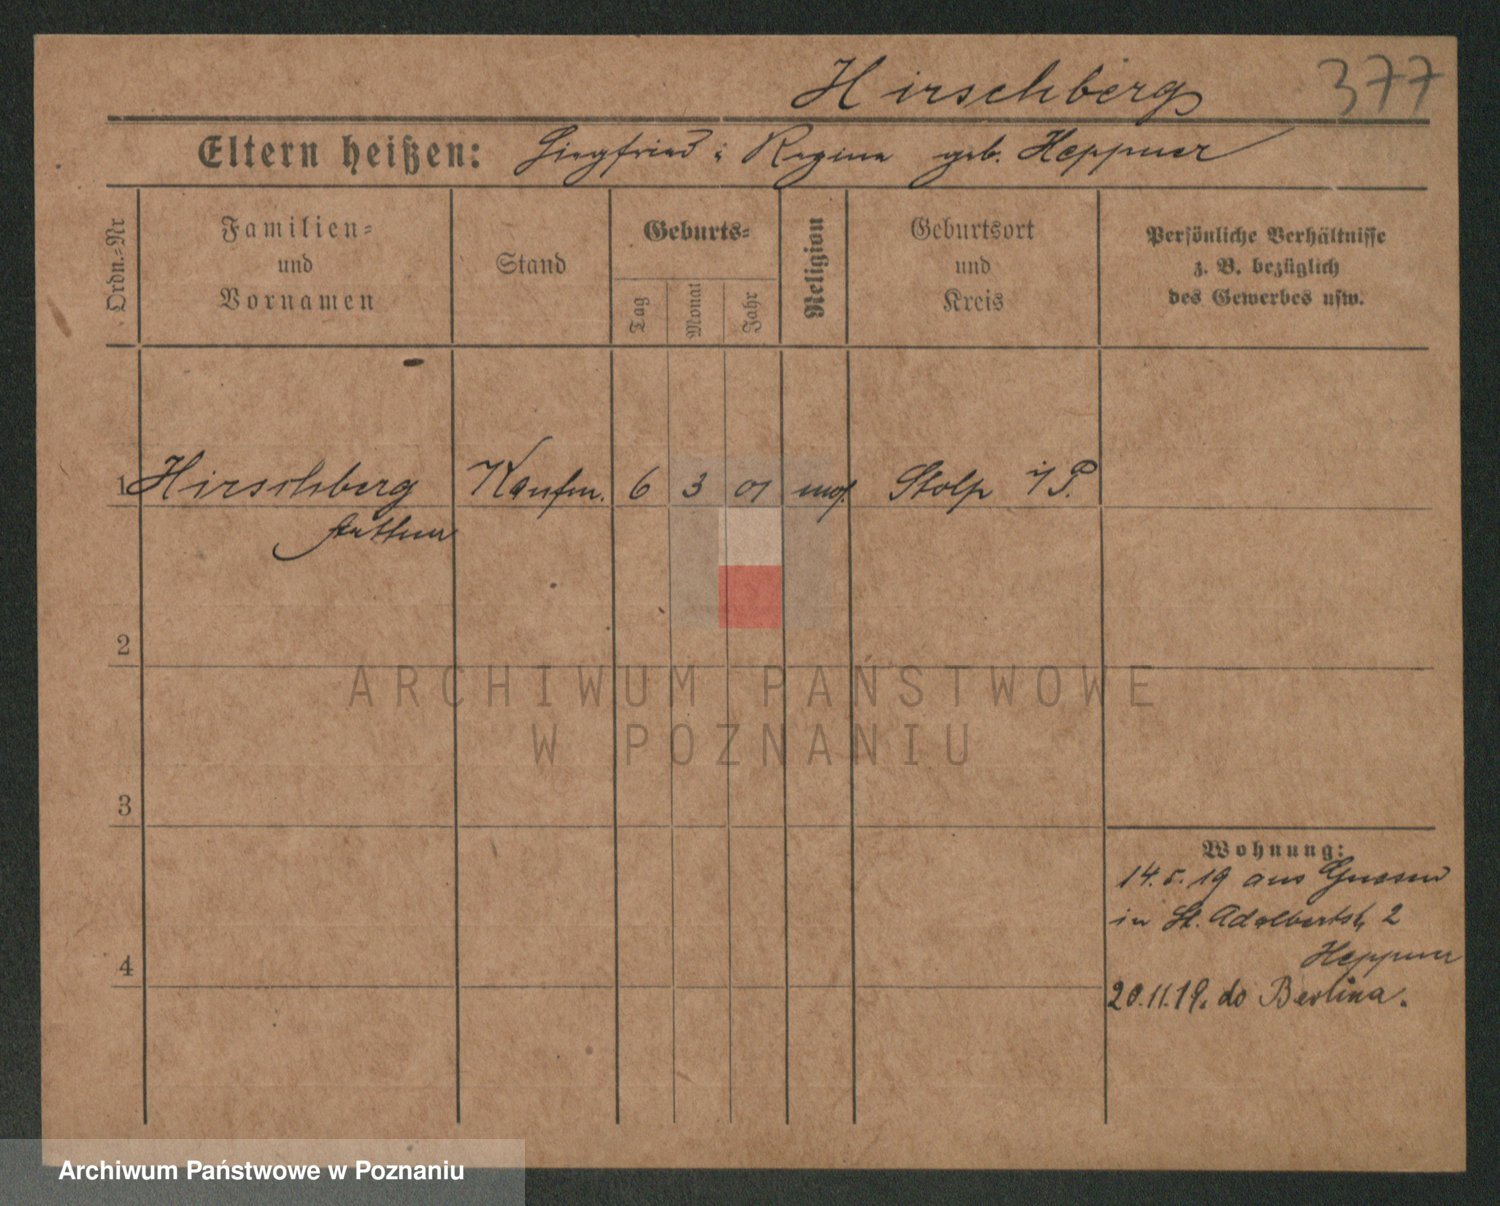 Hirschberg 377
Eltern heißen: Siegfried i Regina geb. Heppner
Ordn.-Nr
Familien-
und
Vornamen
Stand
Geburts-
Tag
Monat
Jahr
Religion
Geburtsort
und
Kreis
Persönliche Verhältnisse
z. B. bezüglich
des Gewerbes usw.
1 Hirschberg Kaufm. 6 3 01 mos. Stolp i/P.
Arthur
2
ARCHIWUM PAŃSTWOWE
W POZNANIU
3
Wohnung:
14.5.19 aus Gnesen
in St. Adalbertstr. 2
Heppner
4
20.11.19. do Berlina.
Archiwum Państwowe w Poznaniu